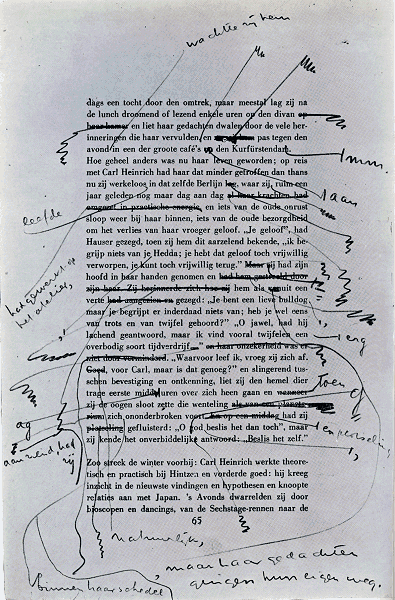 wachtte zij hem
dags een tocht door den omtrek, maar meestal lag zij na
de lunch droomend of lezend enkele uren op den divan op
haar kamer en liet haar gedachten dwalen door de vele her-
inneringen die haar vervulden en pas tegen den
avond in een der groote café's op den Kurfürstendam.
Hoe geheel anders was nu haar leven geworden; op reis
met Carl Heinrich had haar dat minder getroffen dan thans
nu zij werkeloos in dat zelfde Berlijn lag, waar zij, ruim een
jaar geleden nog maar dag aan dag al haar krachten had
omgezet in practische energie, en iets van de oude onrust
sloop weer bij haar binnen, iets van de oude bezorgdheid
om het verlies van haar vroeger geloof. „Je geloof”, had
Hauser gezegd, toen zij hem dit aarzelend bekende, „ik be-
grijp niets van je Hedda; je hebt dat geloof toch vrijwillig
verworpen, je kunt toch vrijwillig terug.” Maar zij had zijn
hoofd in haar handen genomen en had hem getroeld door
zijn haar. Zij beheerde zich hoe zij hem als uit een
verte had aangezien en gezegd: „Je bent een lieve bulldog
maar je begrijpt er inderdaad niets van; heb je wel eens
van trots en van twijfel gehoord?” “O jawel, had hij
lachend geantwoord, maar ik vind vooral twijfelen een
overbodig soort tijdverdrijf.” en haar onzekerheid was er
niet door verminderd. „Waarvoor leef ik, vroeg zij zich af.
Goed, voor Carl, maar is dat genoeg?” en slingerend tus-
schen bevestiging en ontkenning, liet zij den hemel dier
trage eerste middaguren over zich heen gaan en wanneer
zij de oogen sloot zette die wenteling als van een planeta-
rium zich ononderbroken voort. En op een middag had zij
plotseling gefluisterd: „O god beslis het dan toch”, maar
zij kende het onverbiddelijk antwoord: „Beslis het zelf.”
Zoo streek de winter voorbij: Carl Heinrich werkte theore-
tisch en practisch bij Hintzen en vorderde goed: hij kreeg
inzicht in de nieuwste vindingen en hypothesen en knoopte
relaties aan met Japan. 's Avonds dwarrelden zij door
bioscopen en dancings, van de Sechstage-rennen naar de
65
leefde
aan
erg
toen
ag
aanziend had
zij
natuurlijk,
maar haar gedachten
gingen hun eigen weg.
binnen haar schedel